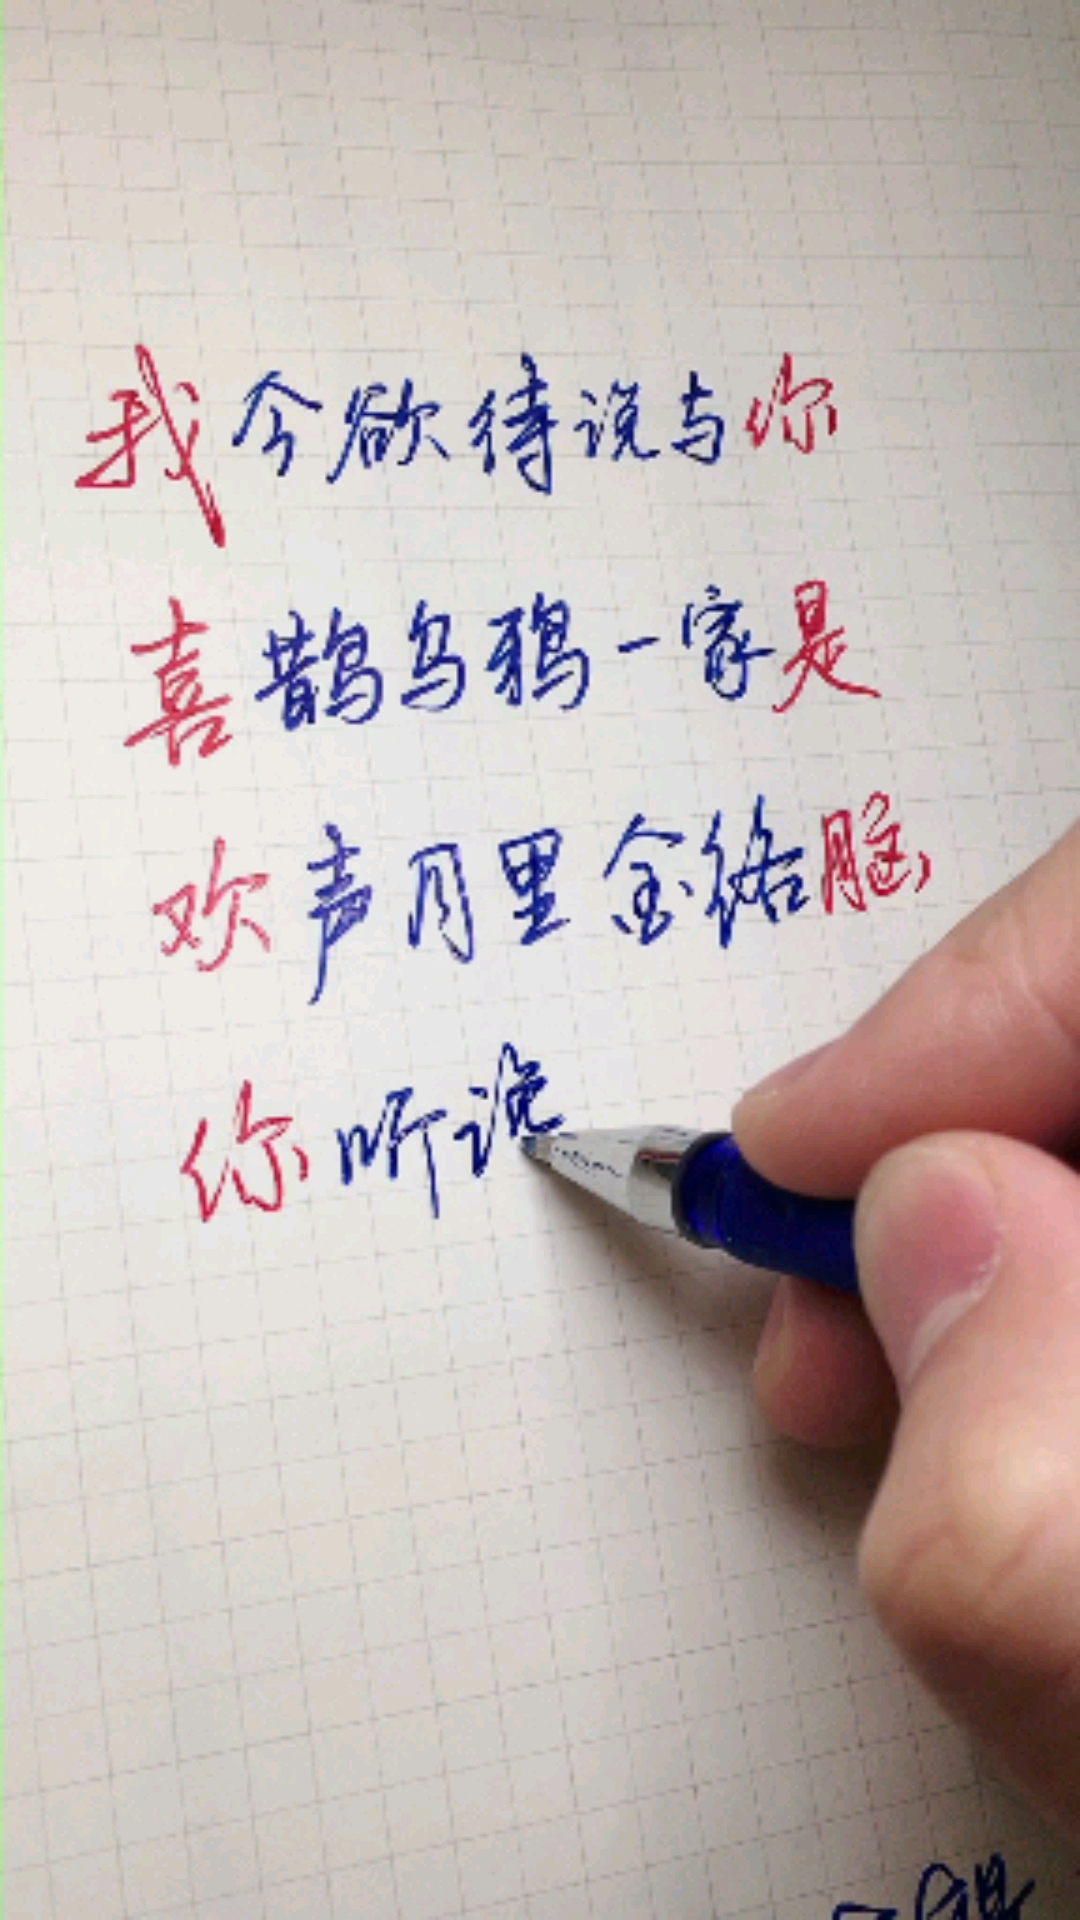 我今欲待说与你
喜鹊乌鸦一家是
欢声月里金络脑
你听说